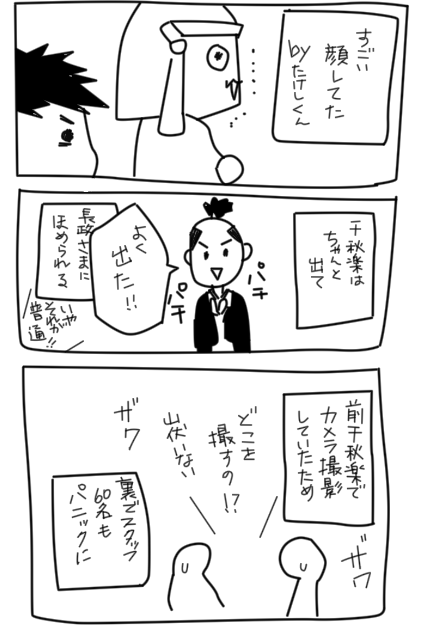 すごい
顔してた
byたけしくん
千秋楽は
ちゃんと
出て
パチ
パチ
よく
出た!!
長政さまに
ほめられる
いや
それが
普通!!
前千秋楽で
カメラ撮影
していたため
ザワ
どこを
撮すの!?
山伏いない
ザワ
裏でスタッフ
60名も
パニックに